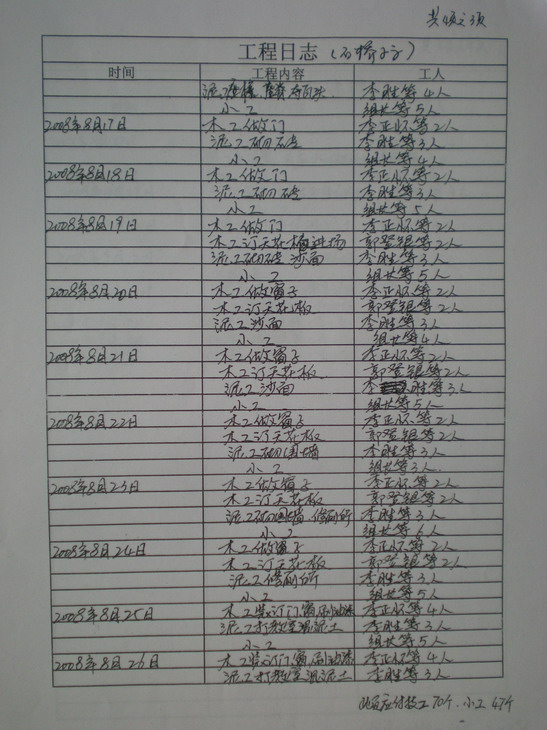 工程日志（石桥小学）
时间 工程内容 工人
泥工 李胜等4人
小工 组世等5人
2008年8月17日 木工做门 李正怀等2人
泥工砌砖 李胜等3人
小工 组世等4人
2008年8月18日 木工做门 李正怀等2人
泥工砌砖 李胜等3人
小工 组世等5人
2008年8月19日 木工做门 李正怀等2人
木工订天花 进场 郭登银等2人
泥工砌砖 沙面 李胜等3人
小工 组世等5人
2008年8月20日 木工做窗子 李正怀等2人
木工订天花板 郭登银等2人
泥工沙面 李胜等3人
小工 组世等4人
2008年8月21日 木工做窗子 李正怀等2人
木工订天花板 郭登银等2人
泥工沙面 李胜等3人
小工 组世等5人
2008年8月22日 木工做窗子 李正怀等2人
木工订天花板 郭登银等2人
泥工砌围墙 李胜等3人
小工 组世等3人
2008年8月23日 木工做窗子 李正怀等2人
木工订天花板 郭登银等2人
泥工砌围墙、修厕所 李胜等3人
小工 组世等6人
2008年8月24日 木工做窗子 李正怀等2人
木工订天花板 郭登银等2人
泥工修厕所 李胜等3人
小工 组世等5人
2008年8月25日 木工装订门窗刷油漆 李正怀等4人
泥工打教室混泥土 李胜等3人
小工 组世等5人
2008年8月26日 木工装订门窗刷油漆 李正怀等4人
泥工打教室混泥土 李胜等3人
此页应付技工70个.小工47个